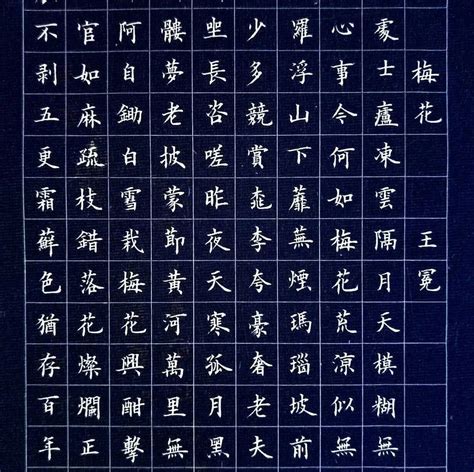 梅花 王冕
處士廬凍雲隔月天模糊無
心事今何如梅花荒涼似無
羅浮山下蘼蕪煙瑪瑙坡前
少多競賞桃李夸豪奢老夫
坐長咨嗟昨夜天寒孤月黑
髏夢老披蒙莭黃河萬里無
阿自鋤白雪栽梅花興酣擊
官如麻疏枝錯落花燦爛正
不剥五更霜蘚色猶存百年